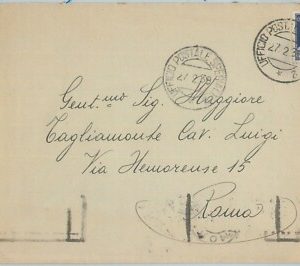 UFFICIO POSTALE SPECIALE
27 2 39
UFFICIO POSTALE
27 2
Gent.mo Sig. Maggiore
Tagliamonte Cav. Luigi
Via Homorense 15
Roma